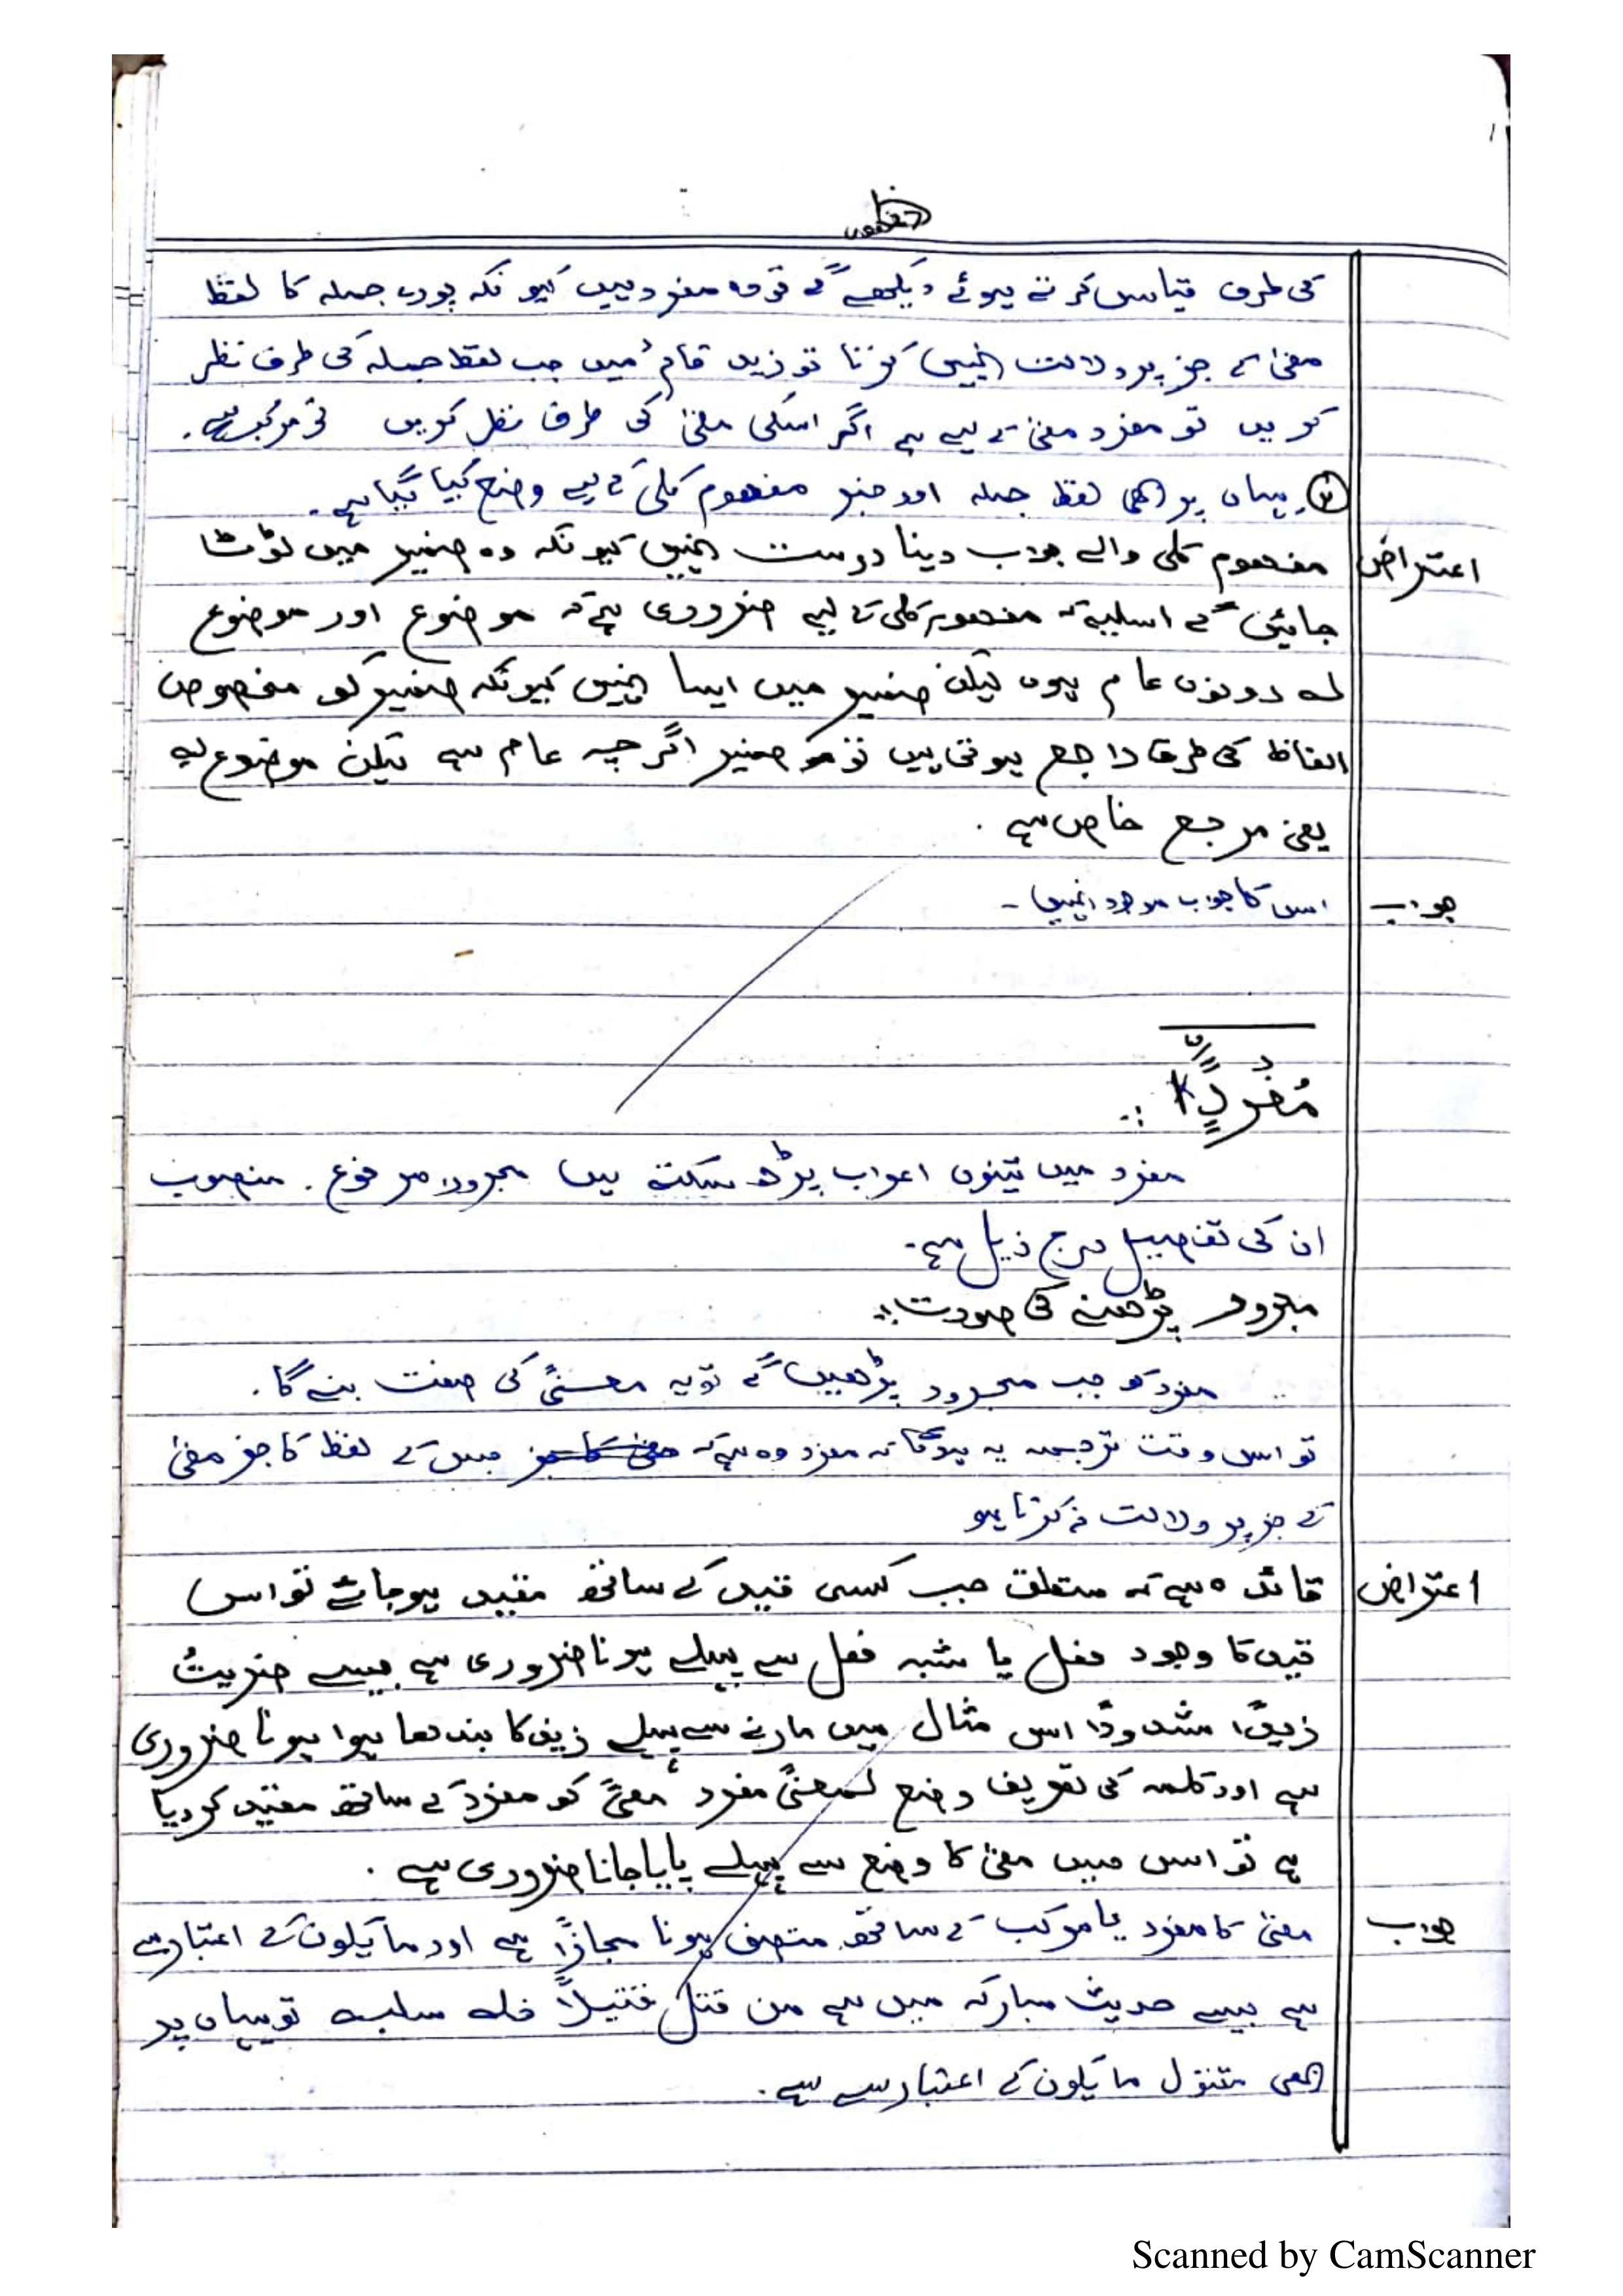 کی طرف قیاس کرتے ہوئے دیکھے گے تو وہ مفرد ہیں کیونکہ پورے جملہ کا لفظ
معنیٰ کے جز پر دلالت نہیں کرتا تو زید قائمٌ میں جب لفظ جملہ کی طرف نظر
کریں تو مفرد معنیٰ کے لیے ہے اگر اسکی معنیٰ کی طرف نظر کریں تو مرکب ہے.
②. یہاں پر بھی لفظ جملہ اور خبر مفہوم کلی کے لیے وضع کیا گیا ہے.
اعتراض مفہوم کلی والے جواب دینا درست نہیں کیونکہ وہ ضمیر میں لوٹٹا
جائیں گے اسلیے کہ مفہوم کلی کے لیے ضروری ہے کہ موضوع اور موضوع
لہ دونوں عام ہوں لیکن ضمیر میں ایسا نہیں کیونکہ ضمیر کو مخصوص
الفاظ کی طرف راجع ہوتی ہیں تو ضمیر اگرچہ عام ہے لیکن موضوع لہ
یعنی مرجع خاص ہے .
جواب اس کا جواب موجود نہیں -
مُفْرَدًا :.
مفرد میں تینوں اعراب پڑھ سکتے ہیں مجرور، مرفوع . منصوب
ان کی تفصیل درج ذیل ہے.
مجرور پڑھنے کی صورت:.
مفرد کو جب مجرور پڑھیں گے تو یہ معنیً کی صفت بنے گا.
تو اس وقت ترجمہ یہ ہوگا کہ مفرد وہ ہے کہ جس کے لفظ کا جز معنیٰ
کے جز پر دلالت نہ کرتا ہو
اعتراض قائدہ ہے کہ متعلق جب کسی قید کے ساتھ مقید ہوجائے تو اس
قید کا وجود فعل یا شبہ فعل سے پہلے ہونا ضروری ہے جیسے ضربتُ
زیدًا مشدودًا اس مثال میں مارنے سے پہلے زید کا بندھا ہوا ہونا ضروری
ہے اور کلمہ کی تعریف وضع لمعنیً مفرد، معنیً کو مفرد کے ساتھ مقید کردیا
ہے تو اس میں معنیٰ کا وضع سے پہلے پایا جانا ضروری ہے .
جواب معنیٰ کا مفرد یا مرکب کے ساتھ متصف ہونا مجازًا ہے اور ما یکون کے اعتبار سے
ہے جیسے حدیث مبارکہ میں ہے من قتل قتیلًا فلہ سلبہ تو یہاں پر
بھی مقتول ما یکون کے اعتبار سے ہے.
Scanned by CamScanner